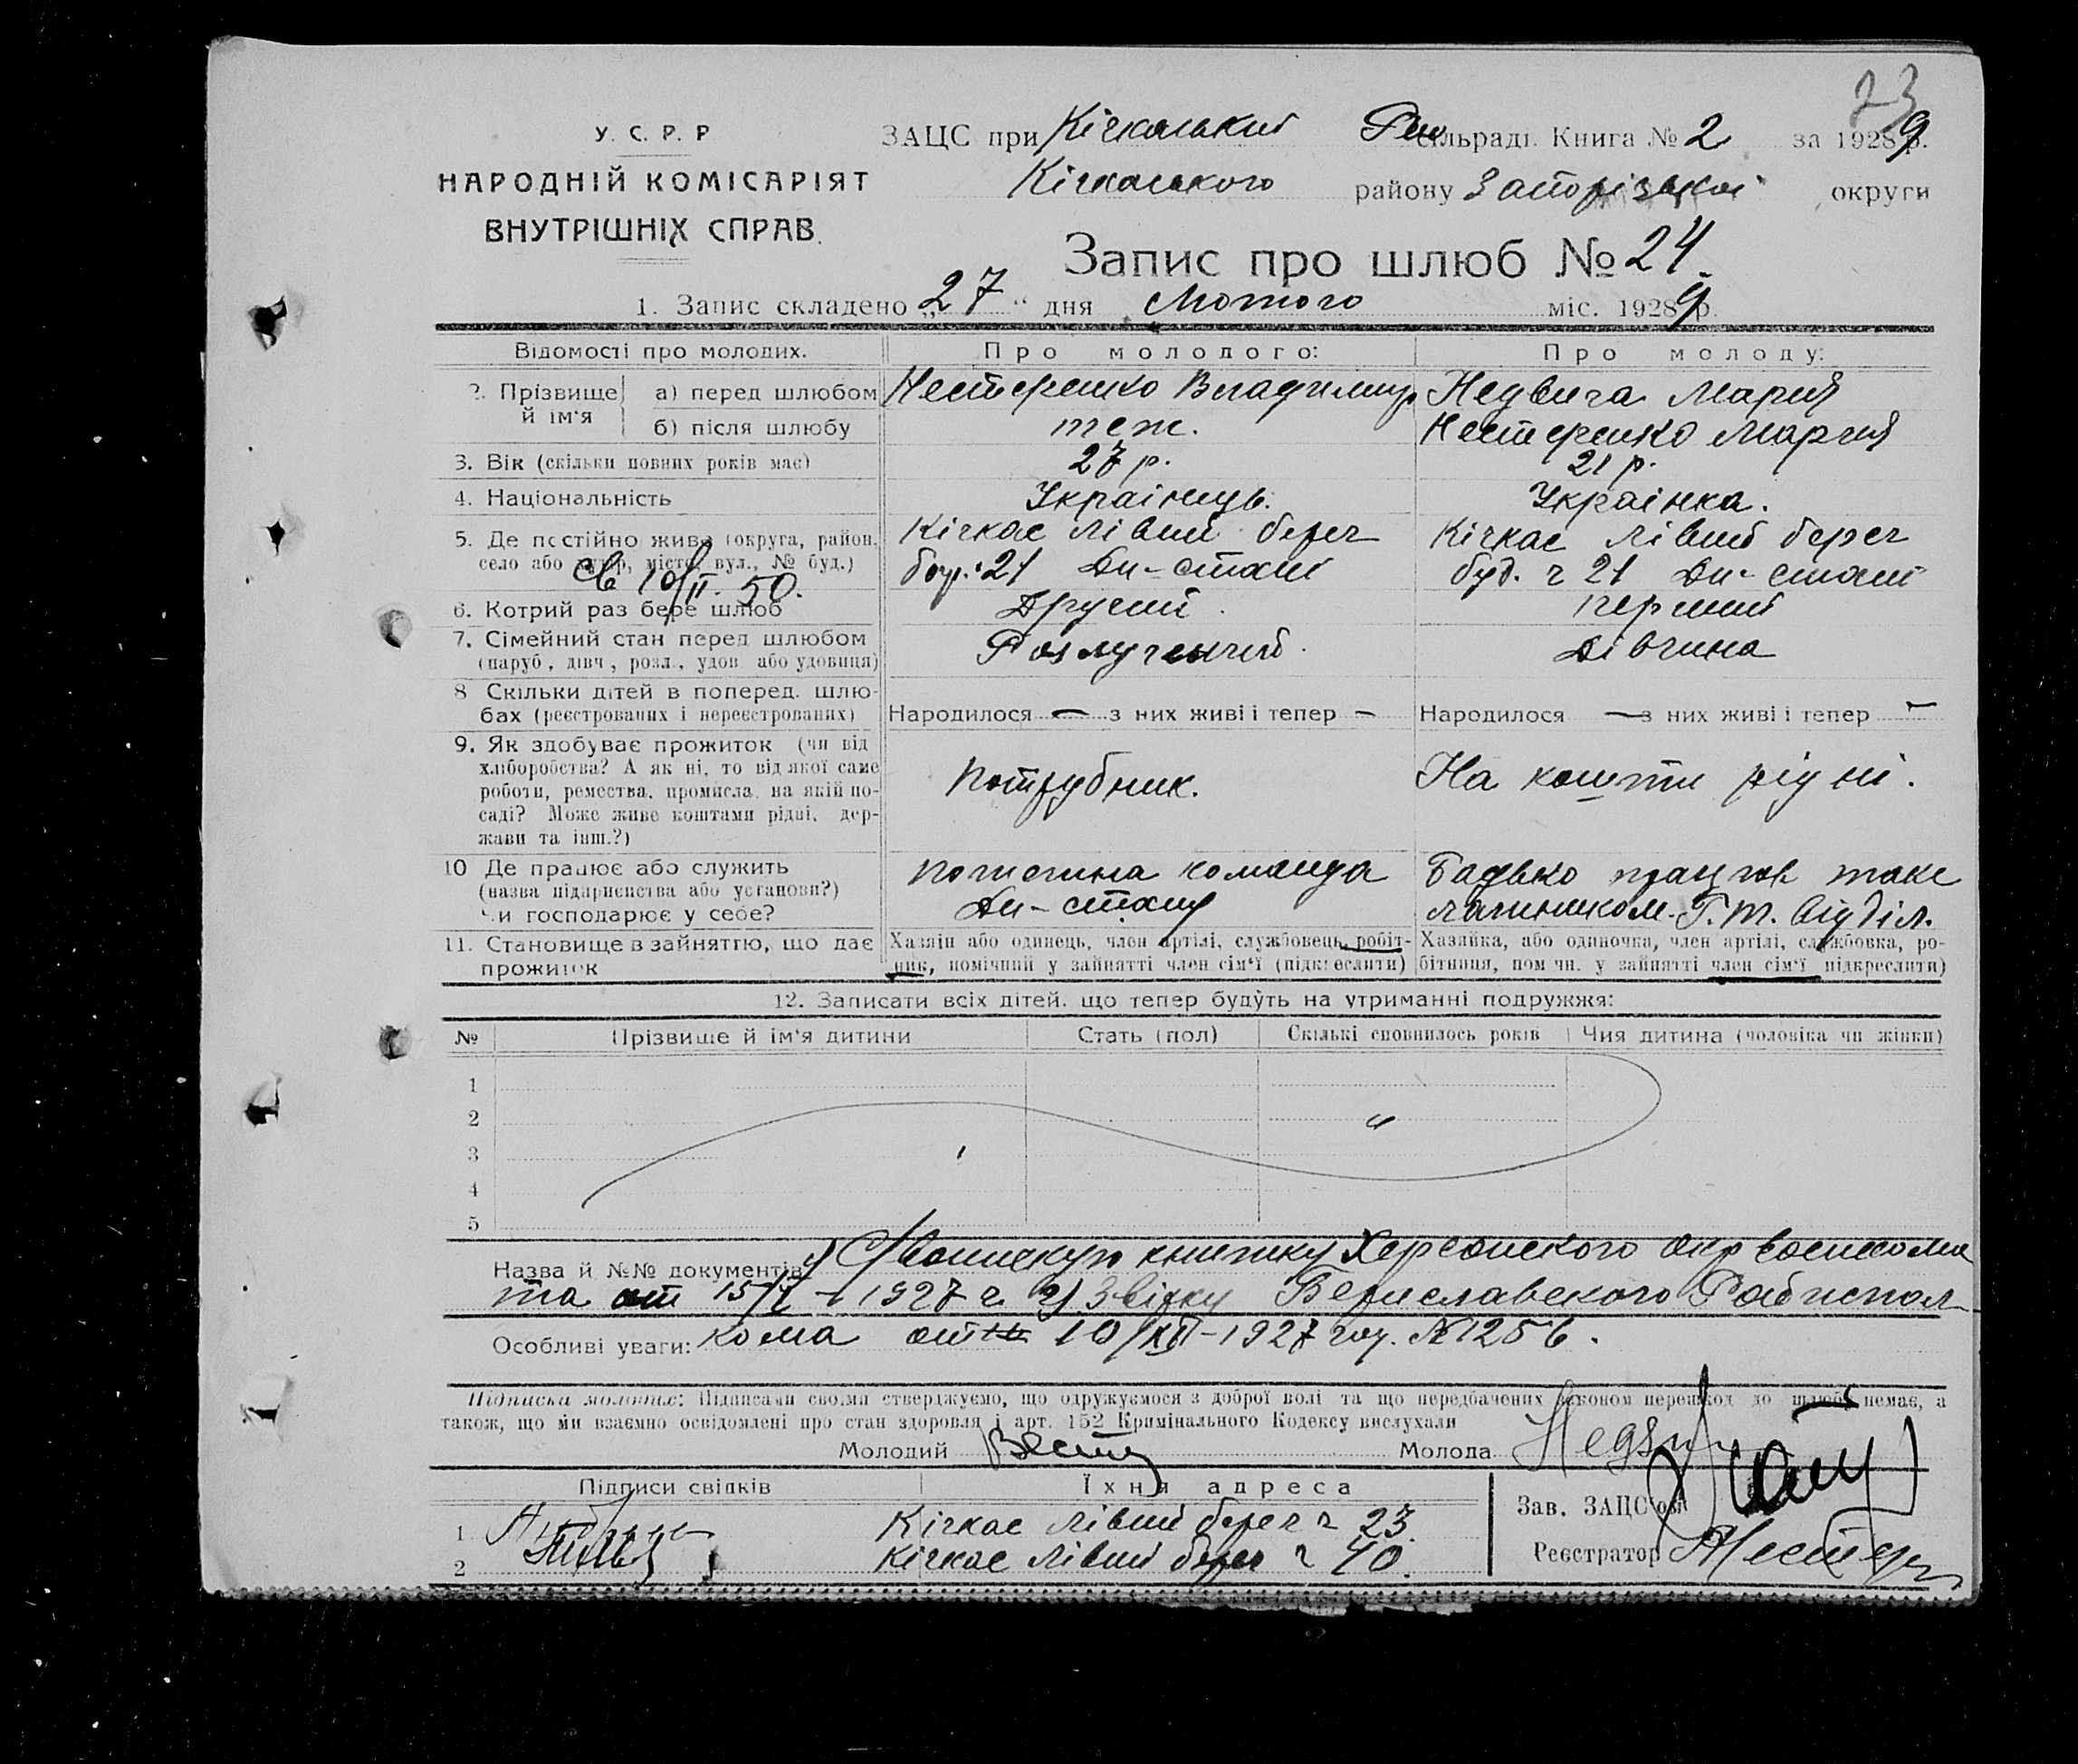 23
У. С. Р. Р
НАРОДНІЙ КОМІСАРІЯТ
ВНУТРІШНІХ СПРАВ.
ЗАЦС при Кічкаський сільраді. Книга № 2 за 1928 9 р.
Кічкаського району Запорізької округи
Запис про шлюб № 24.
1. Запис складено „27“ дня Лютого міс. 1928 9 р.
Відомості про молодих. Про молодого: Про молоду:
2. Прізвище й ім'я а) перед шлюбом Нестеренко Владимир Недвига Мария
б) після шлюбу теж. Нестеренко Мария
3. Вік (скільки повних років має) 27 р. 21 р.
4. Національність Українець. Українка.
5. Де постійно живе (округа, район, Кічкас лівий берег Кічкас лівий берег
село або хутір, місто, вул., № буд.) буд. 21 Дн-стані буд. ч 21 Дн-стані
Св 10/II-50.
6. Котрий раз бере шлюб Другий перший
7. Сімейний стан перед шлюбом Розлучений. Дівчина
(паруб., дівч., розл., удов. або удовиця)
8 Скільки дітей в поперед. шлю-
бах (реєстрованих і нереєстрованих) Народилося — з них живі і тепер — Народилося — з них живі і тепер —
9. Як здобуває прожиток (чи від
хліборобства? А як ні, то від якої саме
роботи, ремества, промисла, на якій по-
саді? Може живе коштами рідні, дер-
жави та інш.?)
На кошти рідні.
10 Де працює або служить команда Батько
(назва підприємства або установи?) Дн-стану Г.Т. відділ.
чи господарює у себе?
11. Становище в зайняттю, що дає Хазяїн або одинець, член артілі, службовець, робіт- Хазяйка, або одиночка, член артілі, службовка, ро-
прожиток ник, помічний у зайнятті член сім'ї (підкреслити) бітниця, пом чн. у зайнятті член сім'ї підкреслити)
12. Записати всіх дітей, що тепер будуть на утриманні подружжя:
№ Прізвище й ім'я дитини Стать (пол) Скількі сповнилось років Чия дитина (чоловіка чи жінки)
1
2
3
4
5
Назва й №№ документів книжку Херсонского Окр Военкома
та от 1927 г. 2) Звірку Бериславского
Особливі уваги: кома от 10/XII-1927 год. № 1256.
Підписка молодих: Підписами своїми стверджуємо, що одружуємося з доброї волі та що передбачених законом перешкод до шлюбу немає, а
також, що ми взаємно освідомлені про стан здоровля і арт. 152 Кримінального Кодексу вислухали
Молодий Молода
Підписи свідків Їхня адреса
Зав. ЗАЦС'ом
1 Кічкас лівий берег ч 23.
Реєстратор
2 Кічкас лівий берег ч 40.